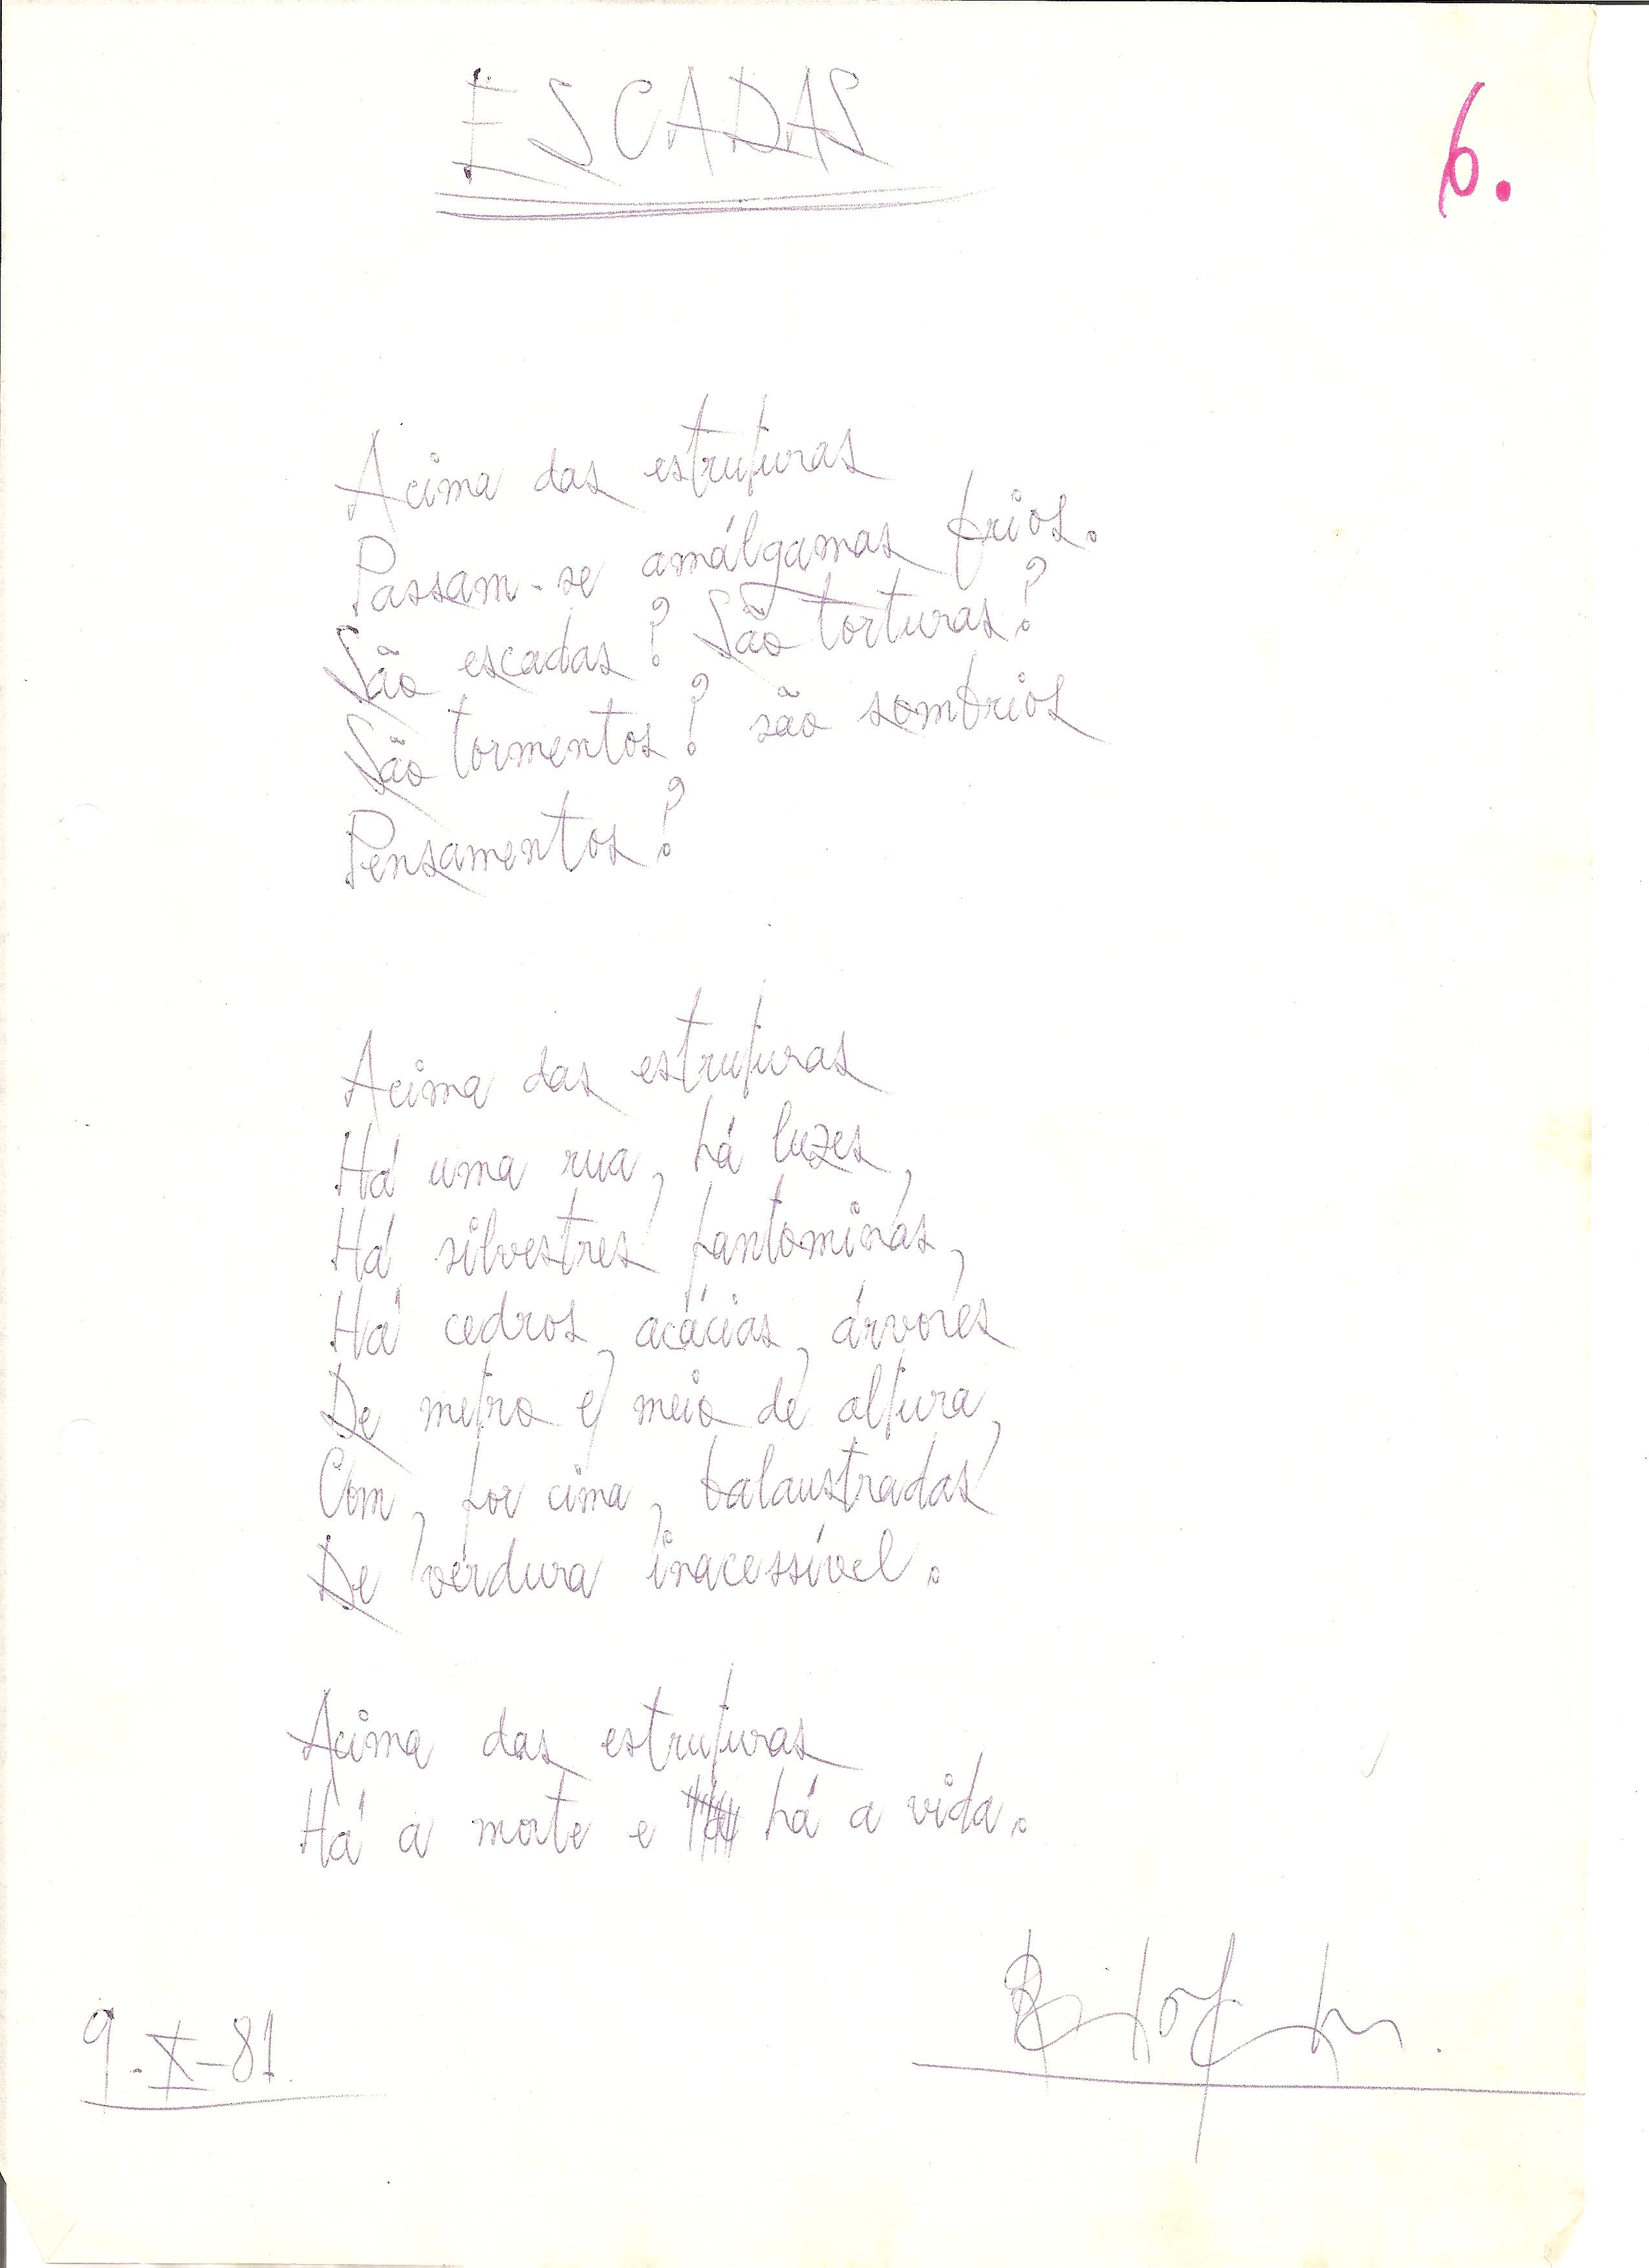 ESCADAS
6.
Acima das estruturas
Passam-se amálgamas frios.
São escadas? São torturas?
São tormentos? são sombrios
Pensamentos?
Acima das estruturas
Há uma rua, há luzes,
Há silvestres pantominas,
Há cedros, acácias, árvores
De metro e meio de altura,
Com, por cima, balaustradas
De verdura inacessível.
Acima das estruturas
Há a morte e há a vida.
9-X-81